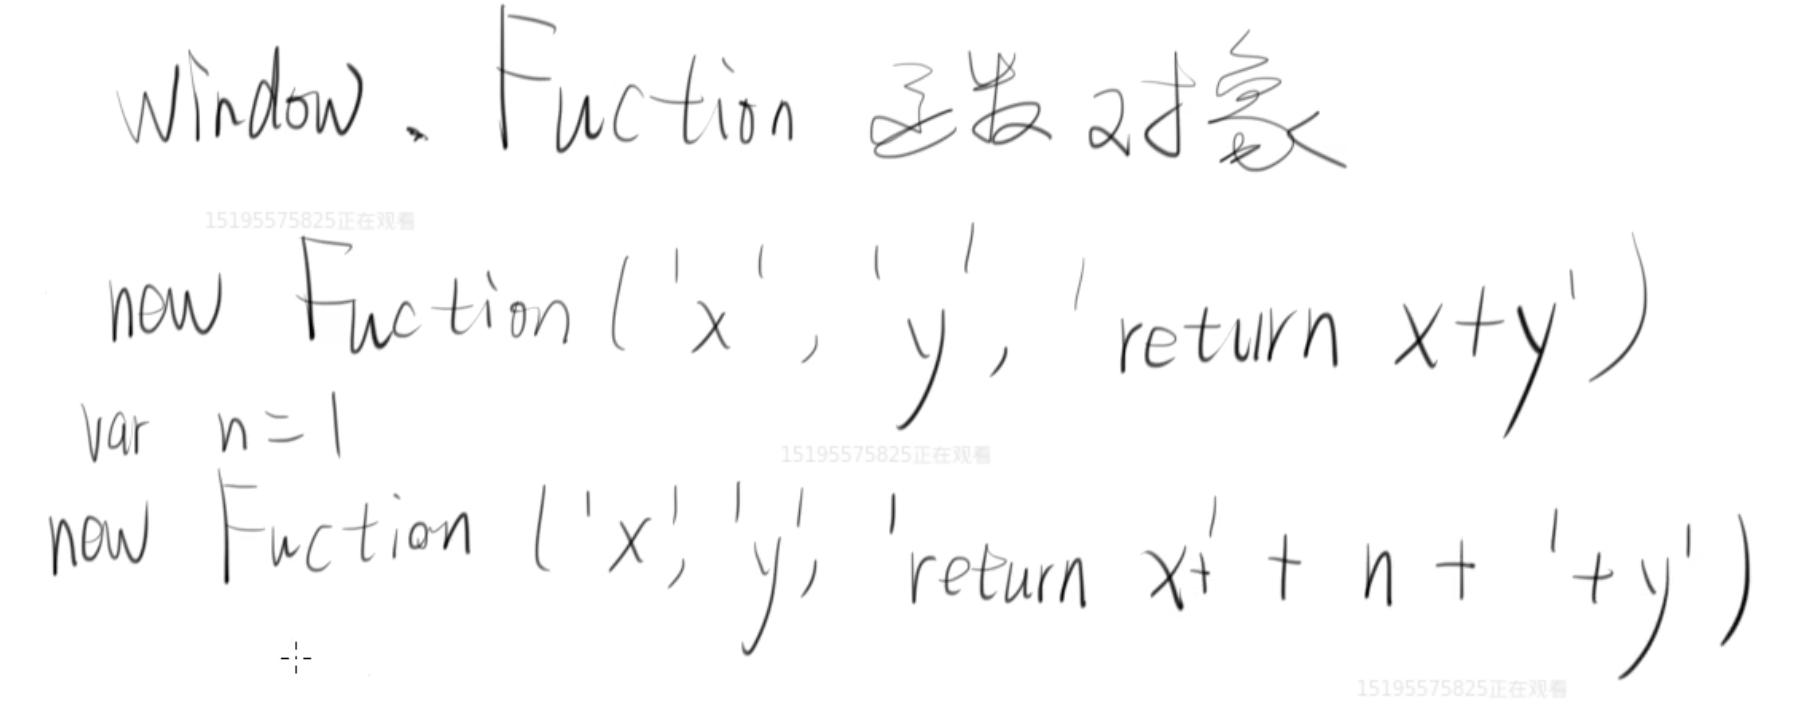 window. Fuction 函数对象
15195575825正在观看
new Fuction('x', 'y', 'return x+y')
var n=1
15195575825正在观看
new Fuction('x', 'y', 'return x+' + n + '+y')
15195575825正在观看